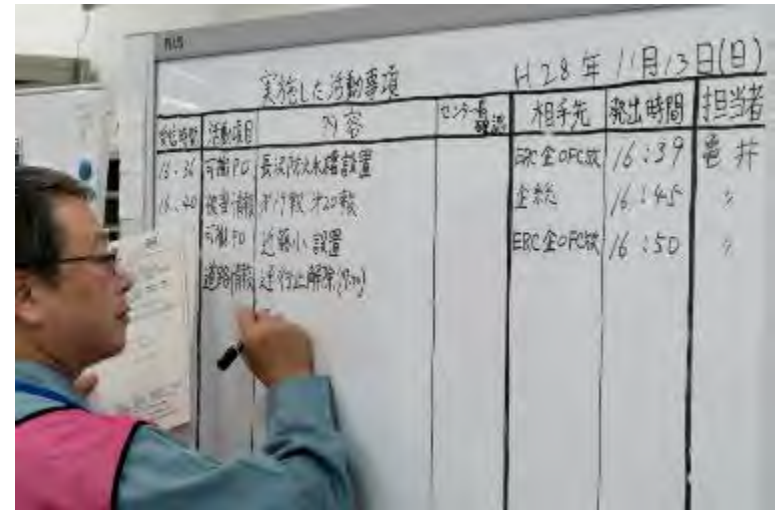 実施した活動事項 H28年11月13日(日)
受信時間 活動項目 内容 センター長確認 相手先 発出時間 担当者
16:36 可搬PO 長沢防火水槽設置 ERC企OFC放 16:39 亀井
16:40 被害情報 才19報 才20報 企統 16:45 〃
可搬PO 近藤小設置 ERC企OFC放 16:50 〃
道路情報 通行止解除